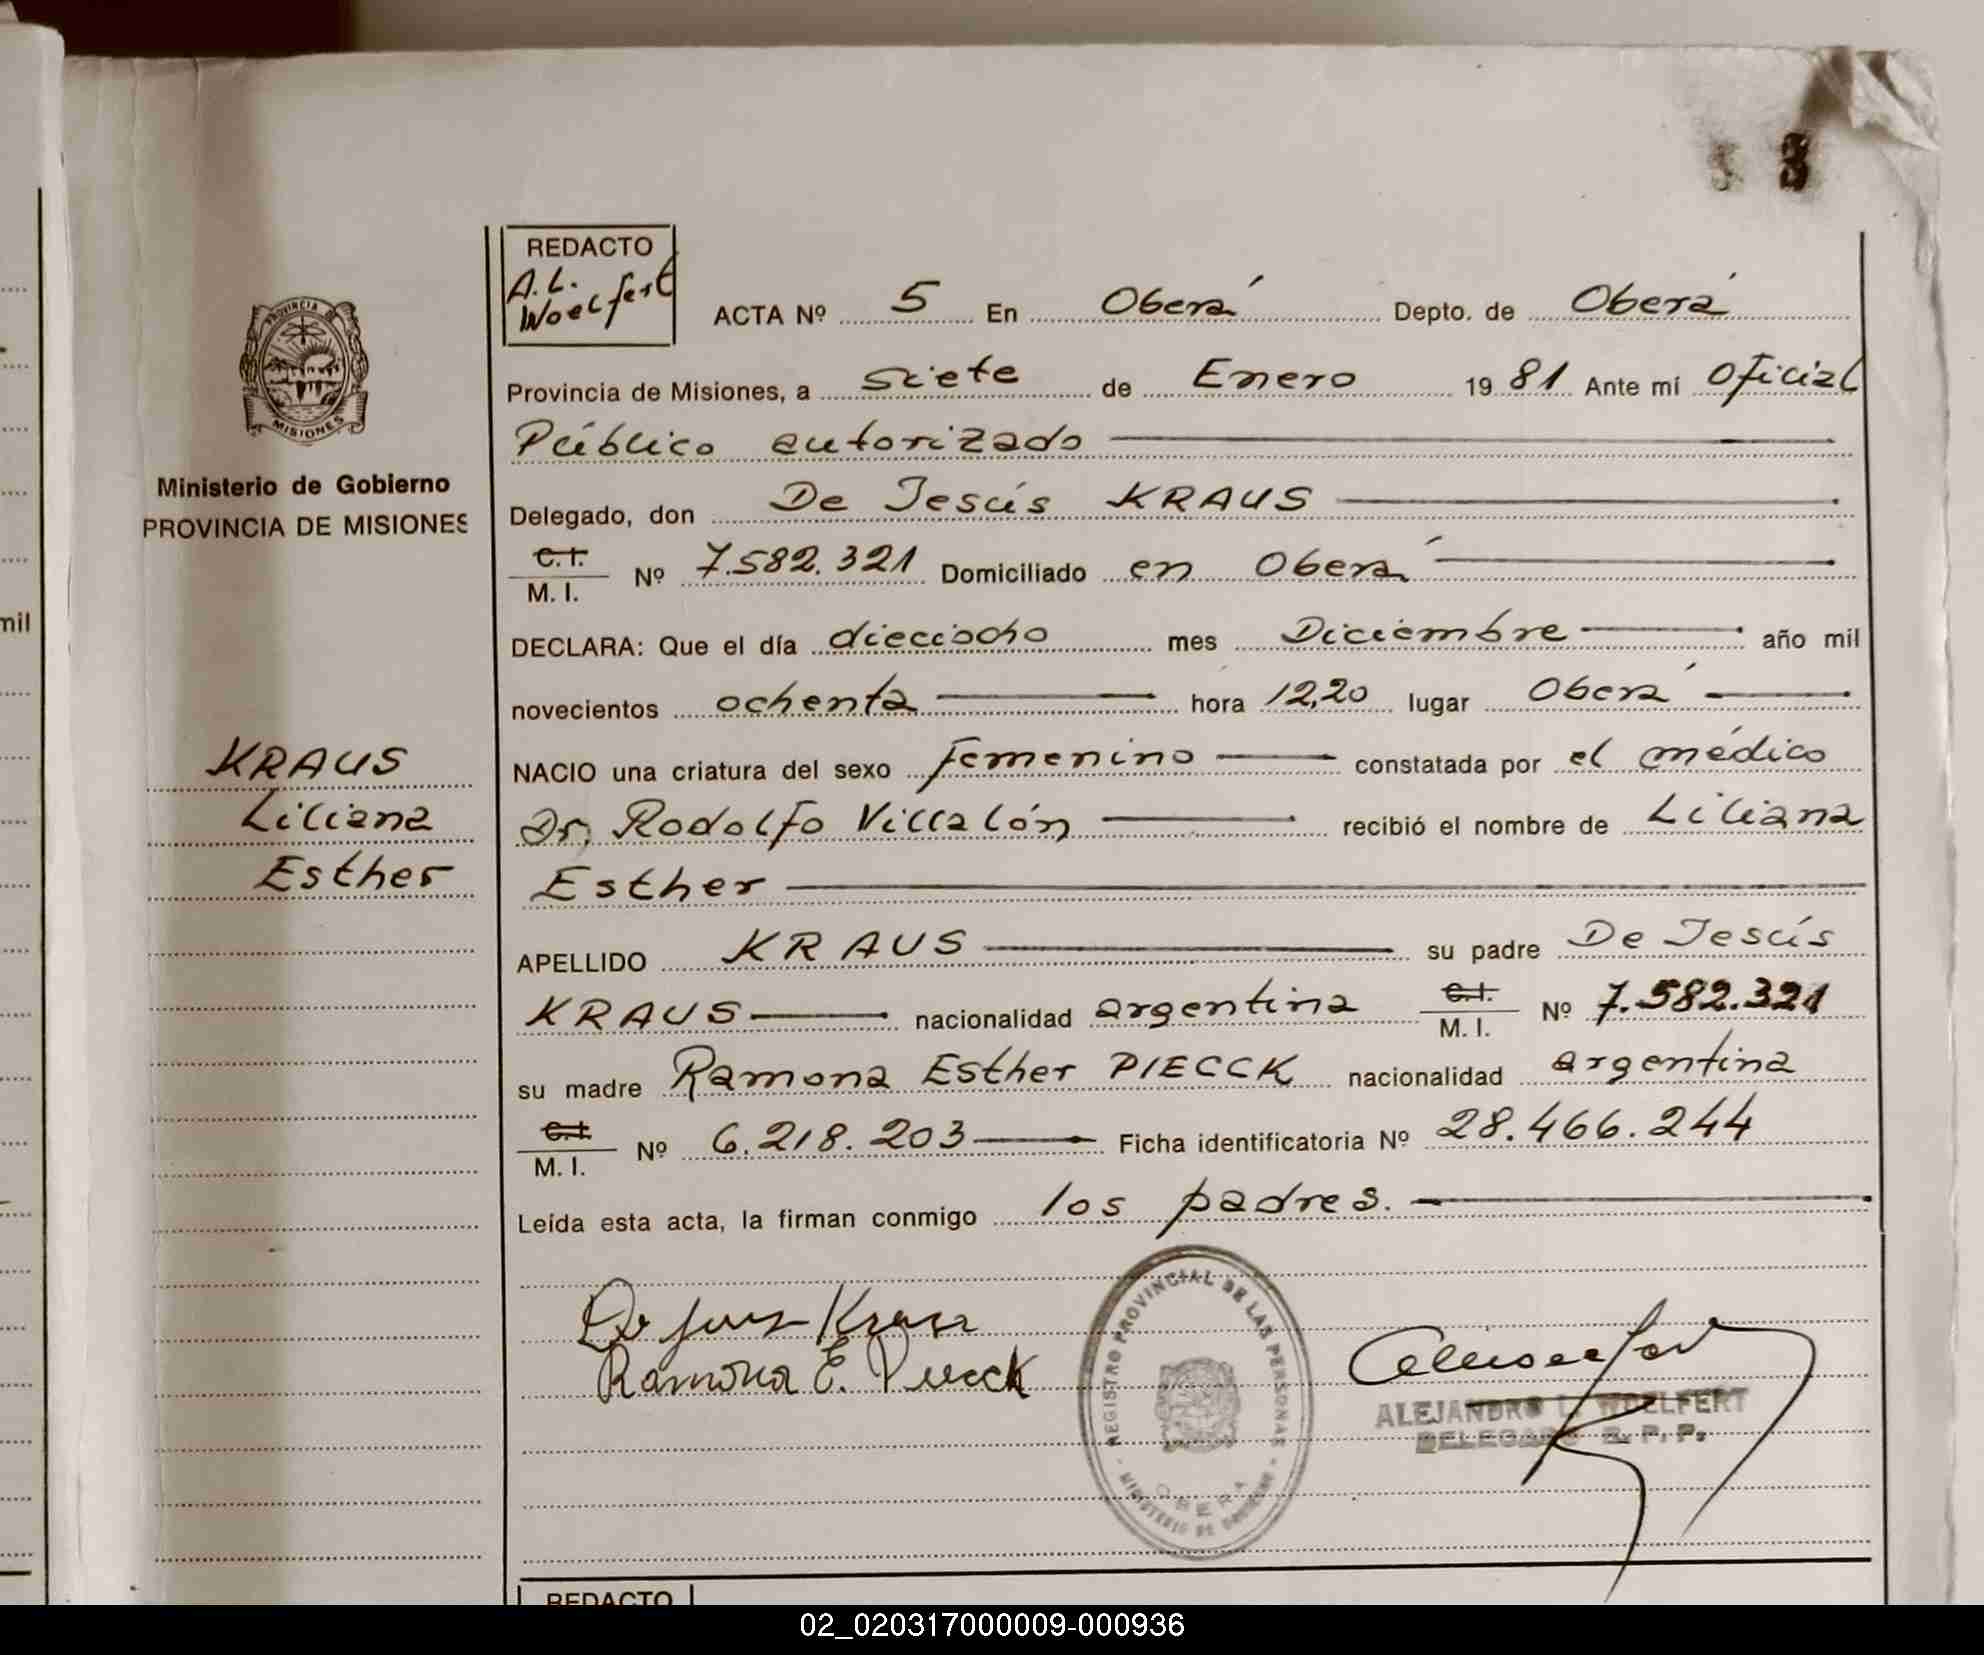 3
REDACTO
A.L.
Woelfert
ACTA Nº 5 En Oberá Depto. de Oberá
Provincia de Misiones, a siete de Enero 1981 Ante mí Oficial
Público autorizado
Delegado, don De Jesús KRAUS
C.I.
M. I. Nº 7.582.321 Domiciliado en Oberá
DECLARA: Que el día dieciocho mes Diciembre año mil
novecientos ochenta hora 12,20 lugar Oberá
NACIO una criatura del sexo femenino constatada por el médico
Dr. Rodolfo Villalón recibió el nombre de Liliana
Esther
APELLIDO KRAUS su padre De Jesús
KRAUS nacionalidad argentina C.I. M. I. Nº 7.582.321
su madre Ramona Esther PIECCK nacionalidad argentina
C.I.
M. I. Nº 6.218.203 Ficha identificatoria Nº 28.466.244
Leída esta acta, la firman conmigo los padres.
PROVINCIA DE
MISIONES
Ministerio de Gobierno
PROVINCIA DE MISIONES
KRAUS
Liliana
Esther
mil
De Jesus Kraus
Ramona E. Piecck
REGISTRO PROVINCIAL DE LAS PERSONAS
OBERA
- MINISTERIO DE GOBIERNO -
ALEJANDRO L. WOELFERT
DELEGADO R. P. P.
REDACTO
02_020317000009-000936